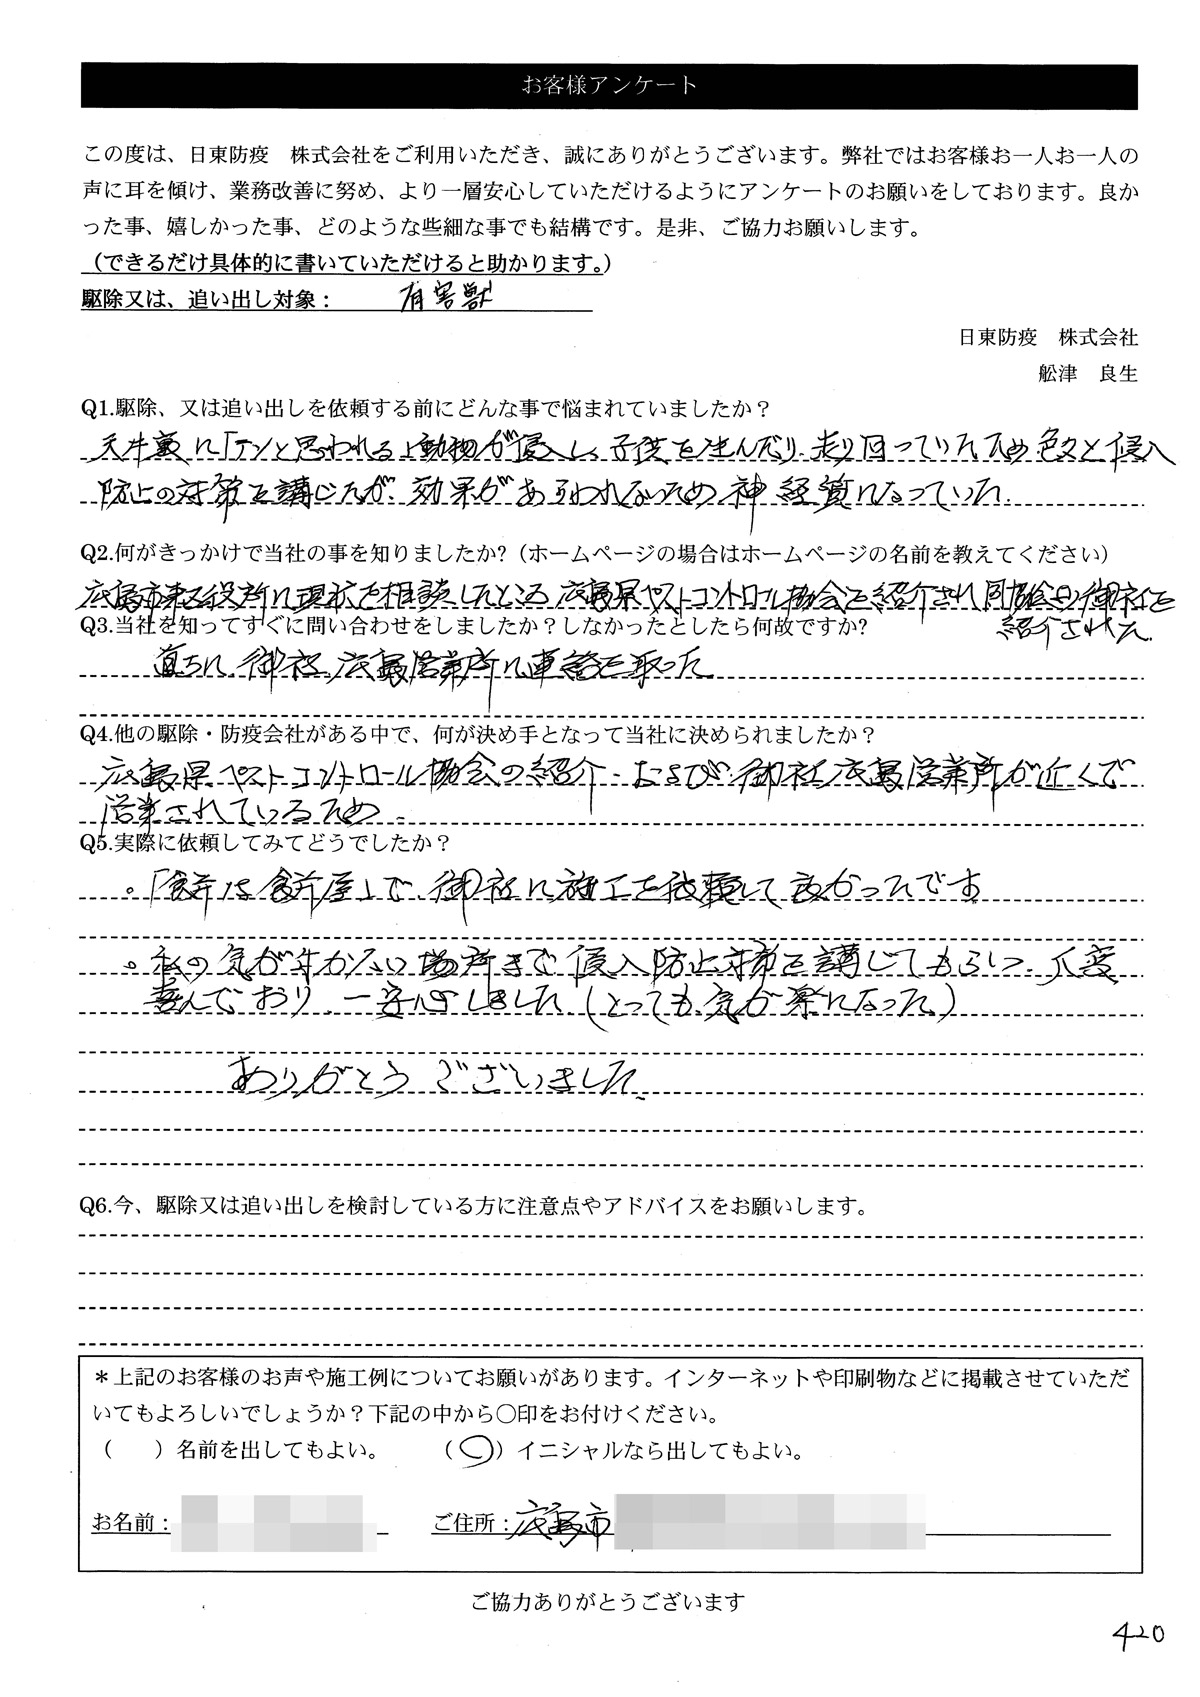 お客様アンケート
この度は、日東防疫　株式会社をご利用いただき、誠にありがとうございます。弊社ではお客様お一人お一人の
声に耳を傾け、業務改善に努め、より一層安心していただけるようにアンケートのお願いをしております。良か
った事、嬉しかった事、どのような些細な事でも結構です。是非、ご協力お願いします。
（できるだけ具体的に書いていただけると助かります。）
駆除又は、追い出し対象： 有害獣
日東防疫　株式会社
舩津　良生
Q1.駆除、又は追い出しを依頼する前にどんな事で悩まれていましたか？
天井裏に「テンと思われる」動物が侵入し、子供を生んだり、走り回っていたため色々と侵入
防止の対策を講じたが、効果があらわれないため神経質になっていた。
Q2.何がきっかけで当社の事を知りましたか?（ホームページの場合はホームページの名前を教えてください）
広島市東区役所に現状を相談したところ広島県ペストコントロール協会を紹介され同協会より御社を
紹介された。
Q3.当社を知ってすぐに問い合わせをしましたか？しなかったとしたら何故ですか?
直ちに御社広島営業所に連絡を取った
Q4.他の駆除・防疫会社がある中で、何が決め手となって当社に決められましたか？
広島県ペストコントロール協会の紹介、および御社広島営業所が近くで
営業されているため。
Q5.実際に依頼してみてどうでしたか？
。「餅は餅屋」で、御社に施工を依頼して良かったです
。私の気が付かない場所まで侵入防止対策を講じてもらい、大変
喜んでおり、一安心しました（とっても気が楽になった）
ありがとうございました。
Q6.今、駆除又は追い出しを検討している方に注意点やアドバイスをお願いします。
＊上記のお客様のお声や施工例についてお願いがあります。インターネットや印刷物などに掲載させていただ
いてもよろしいでしょうか？下記の中から○印をお付けください。
（　　）名前を出してもよい。　　（○）イニシャルなら出してもよい。
お名前：　ご住所：広島市
ご協力ありがとうございます
420